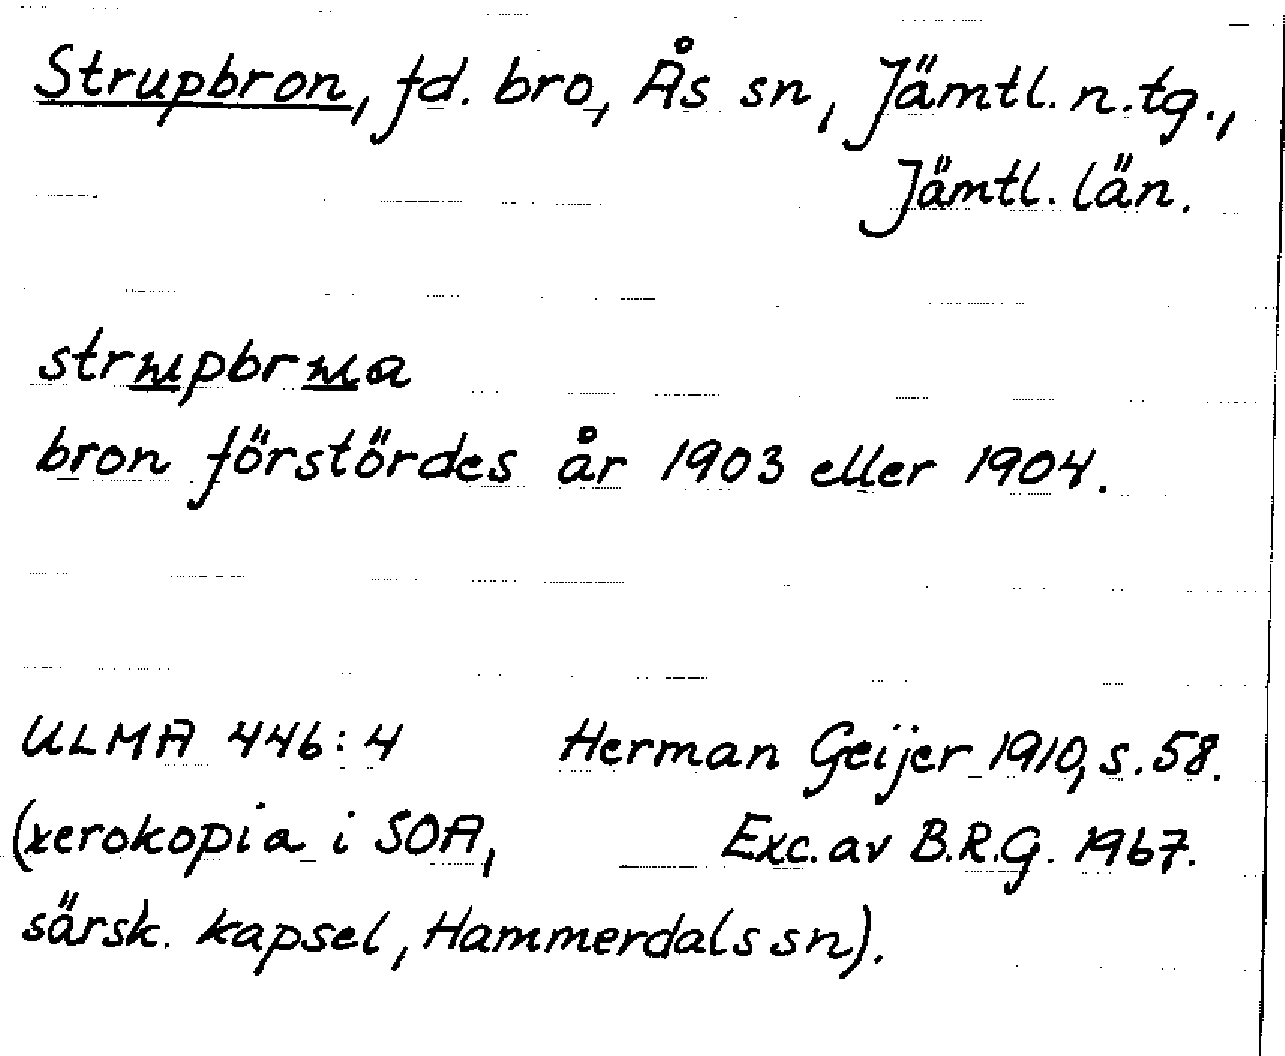 Strupbron, fd. bro, Ås sn, Jämtl. n. tg.,
Jämtl. län.
bron förstördes år 1903 eller 1904.
ULMA 446:4 Herman Geijer 1910, s. 58.
(xerokopia i SOA, Exc. av B.R.G. 1967.
särsk. kapsel, Hammerdals sn).